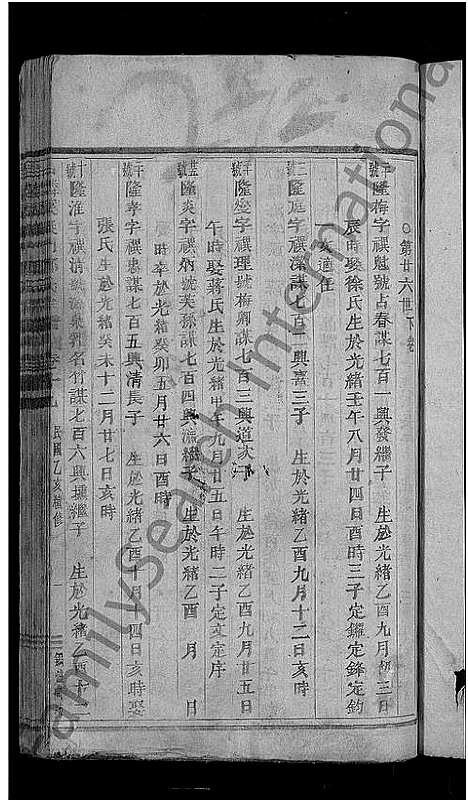 ○第廿六世下卷
隆梅字禩魁號占春謀七百一興發繼子 生於光緒乙酉九月初三日
辰時娶徐氏生於光緒壬午八月廿四日酉時三子定鑼定鋒定鈞
適任
隆庭字禩深謀七百二興喜三子 生於光緒乙酉九月十二日亥時
隆燮字禩理號梅卿謀七百三興道次子 生於光緒乙酉九月廿五日
午時娶蔣氏生於光緒甲 九月廿五日午時二子定文定序
隆炎字禩炳號 孫謀七百四興漁繼子 生於光緒乙酉 月 日
時卒於光緒癸卯五月廿六日酉時
隆孝字禩忠謀七百五興清長子 生於光緒乙酉十月十四日亥時娶
張氏生於光緒癸未十二月廿七日亥時
隆淮字禩清號 泉 名竹謀七百六興 繼子 生於光緒乙酉十二
卷一九 民國乙亥續修
FamilySearch International